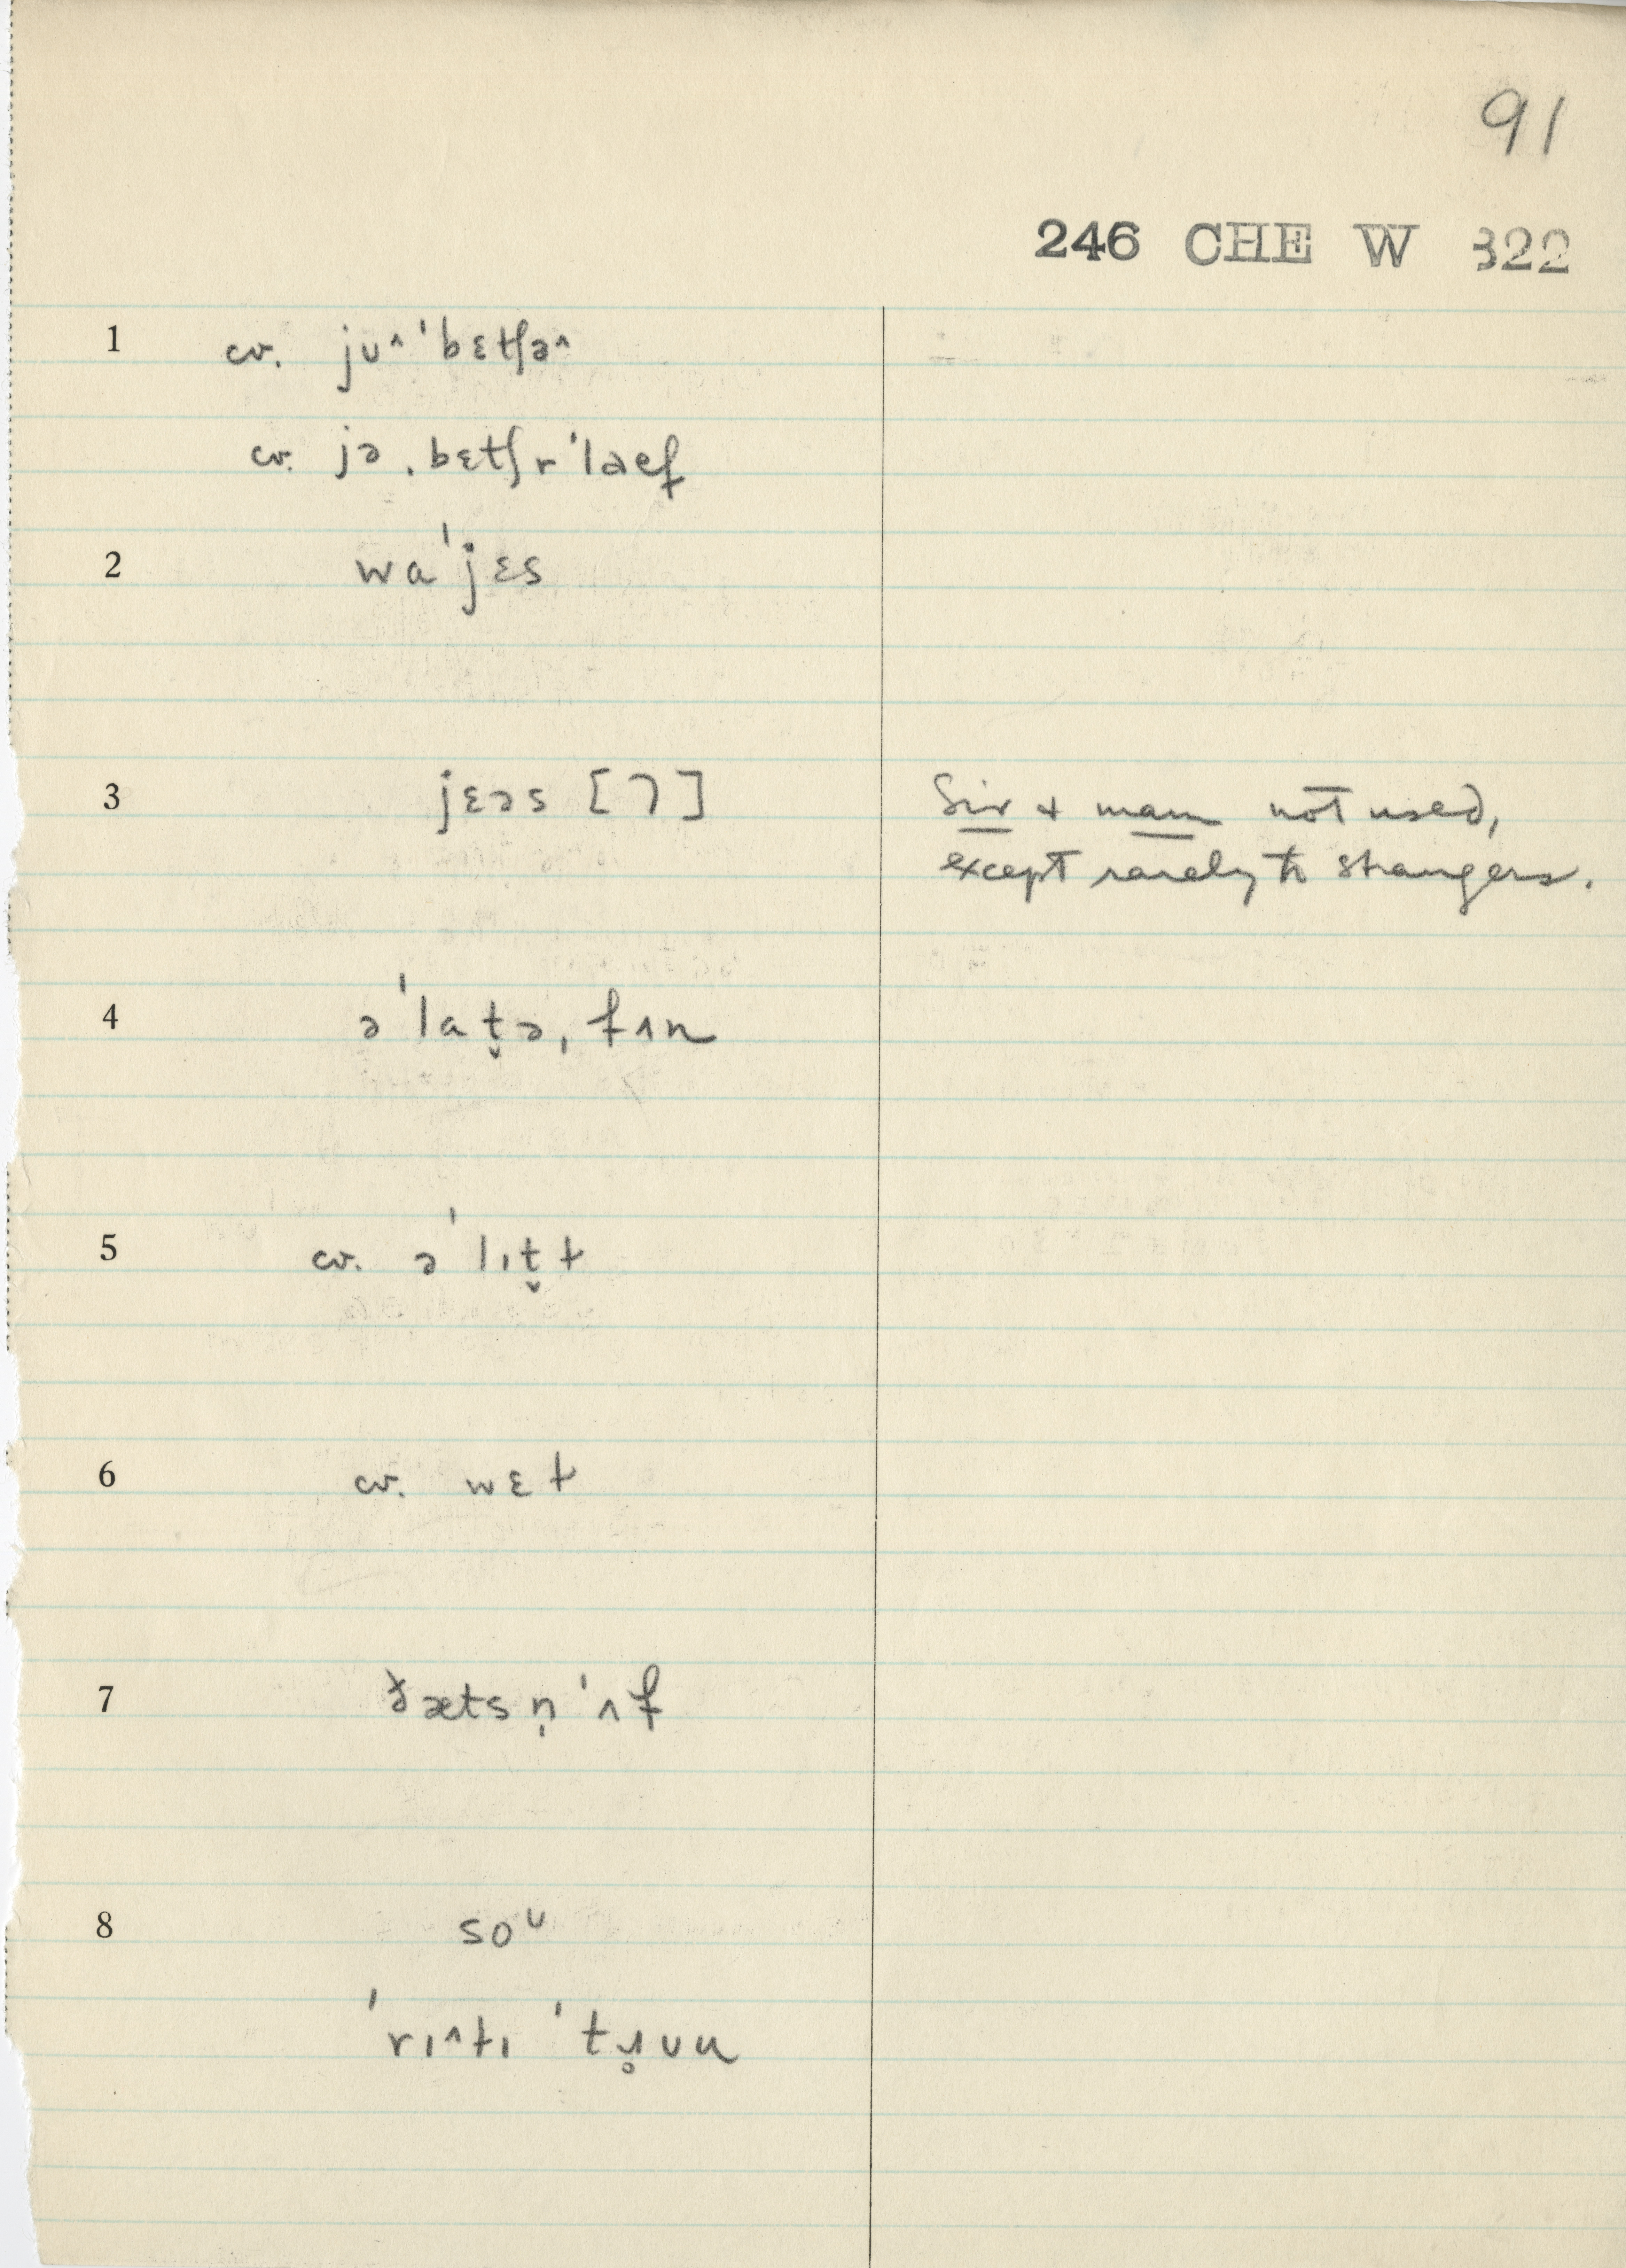 91
246 CHE W 322
1 cv. jᴜ^ˈbɛtʃə^
cv. jəˌbɛtʃɚˈlaef
2 waˈjɛs
3 jɛəs [⌝] Sir + mam not used,
except rarely to strangers.
4 əˈlat̬əˌfʌn
5 cv. əˈlɪt̬ɫ
6 cv. wɛɫ
7 ðætsn̩ˈʌf
8 soᴜ
ˈrɪ^tɪ ˈtɹ̥ᴜu